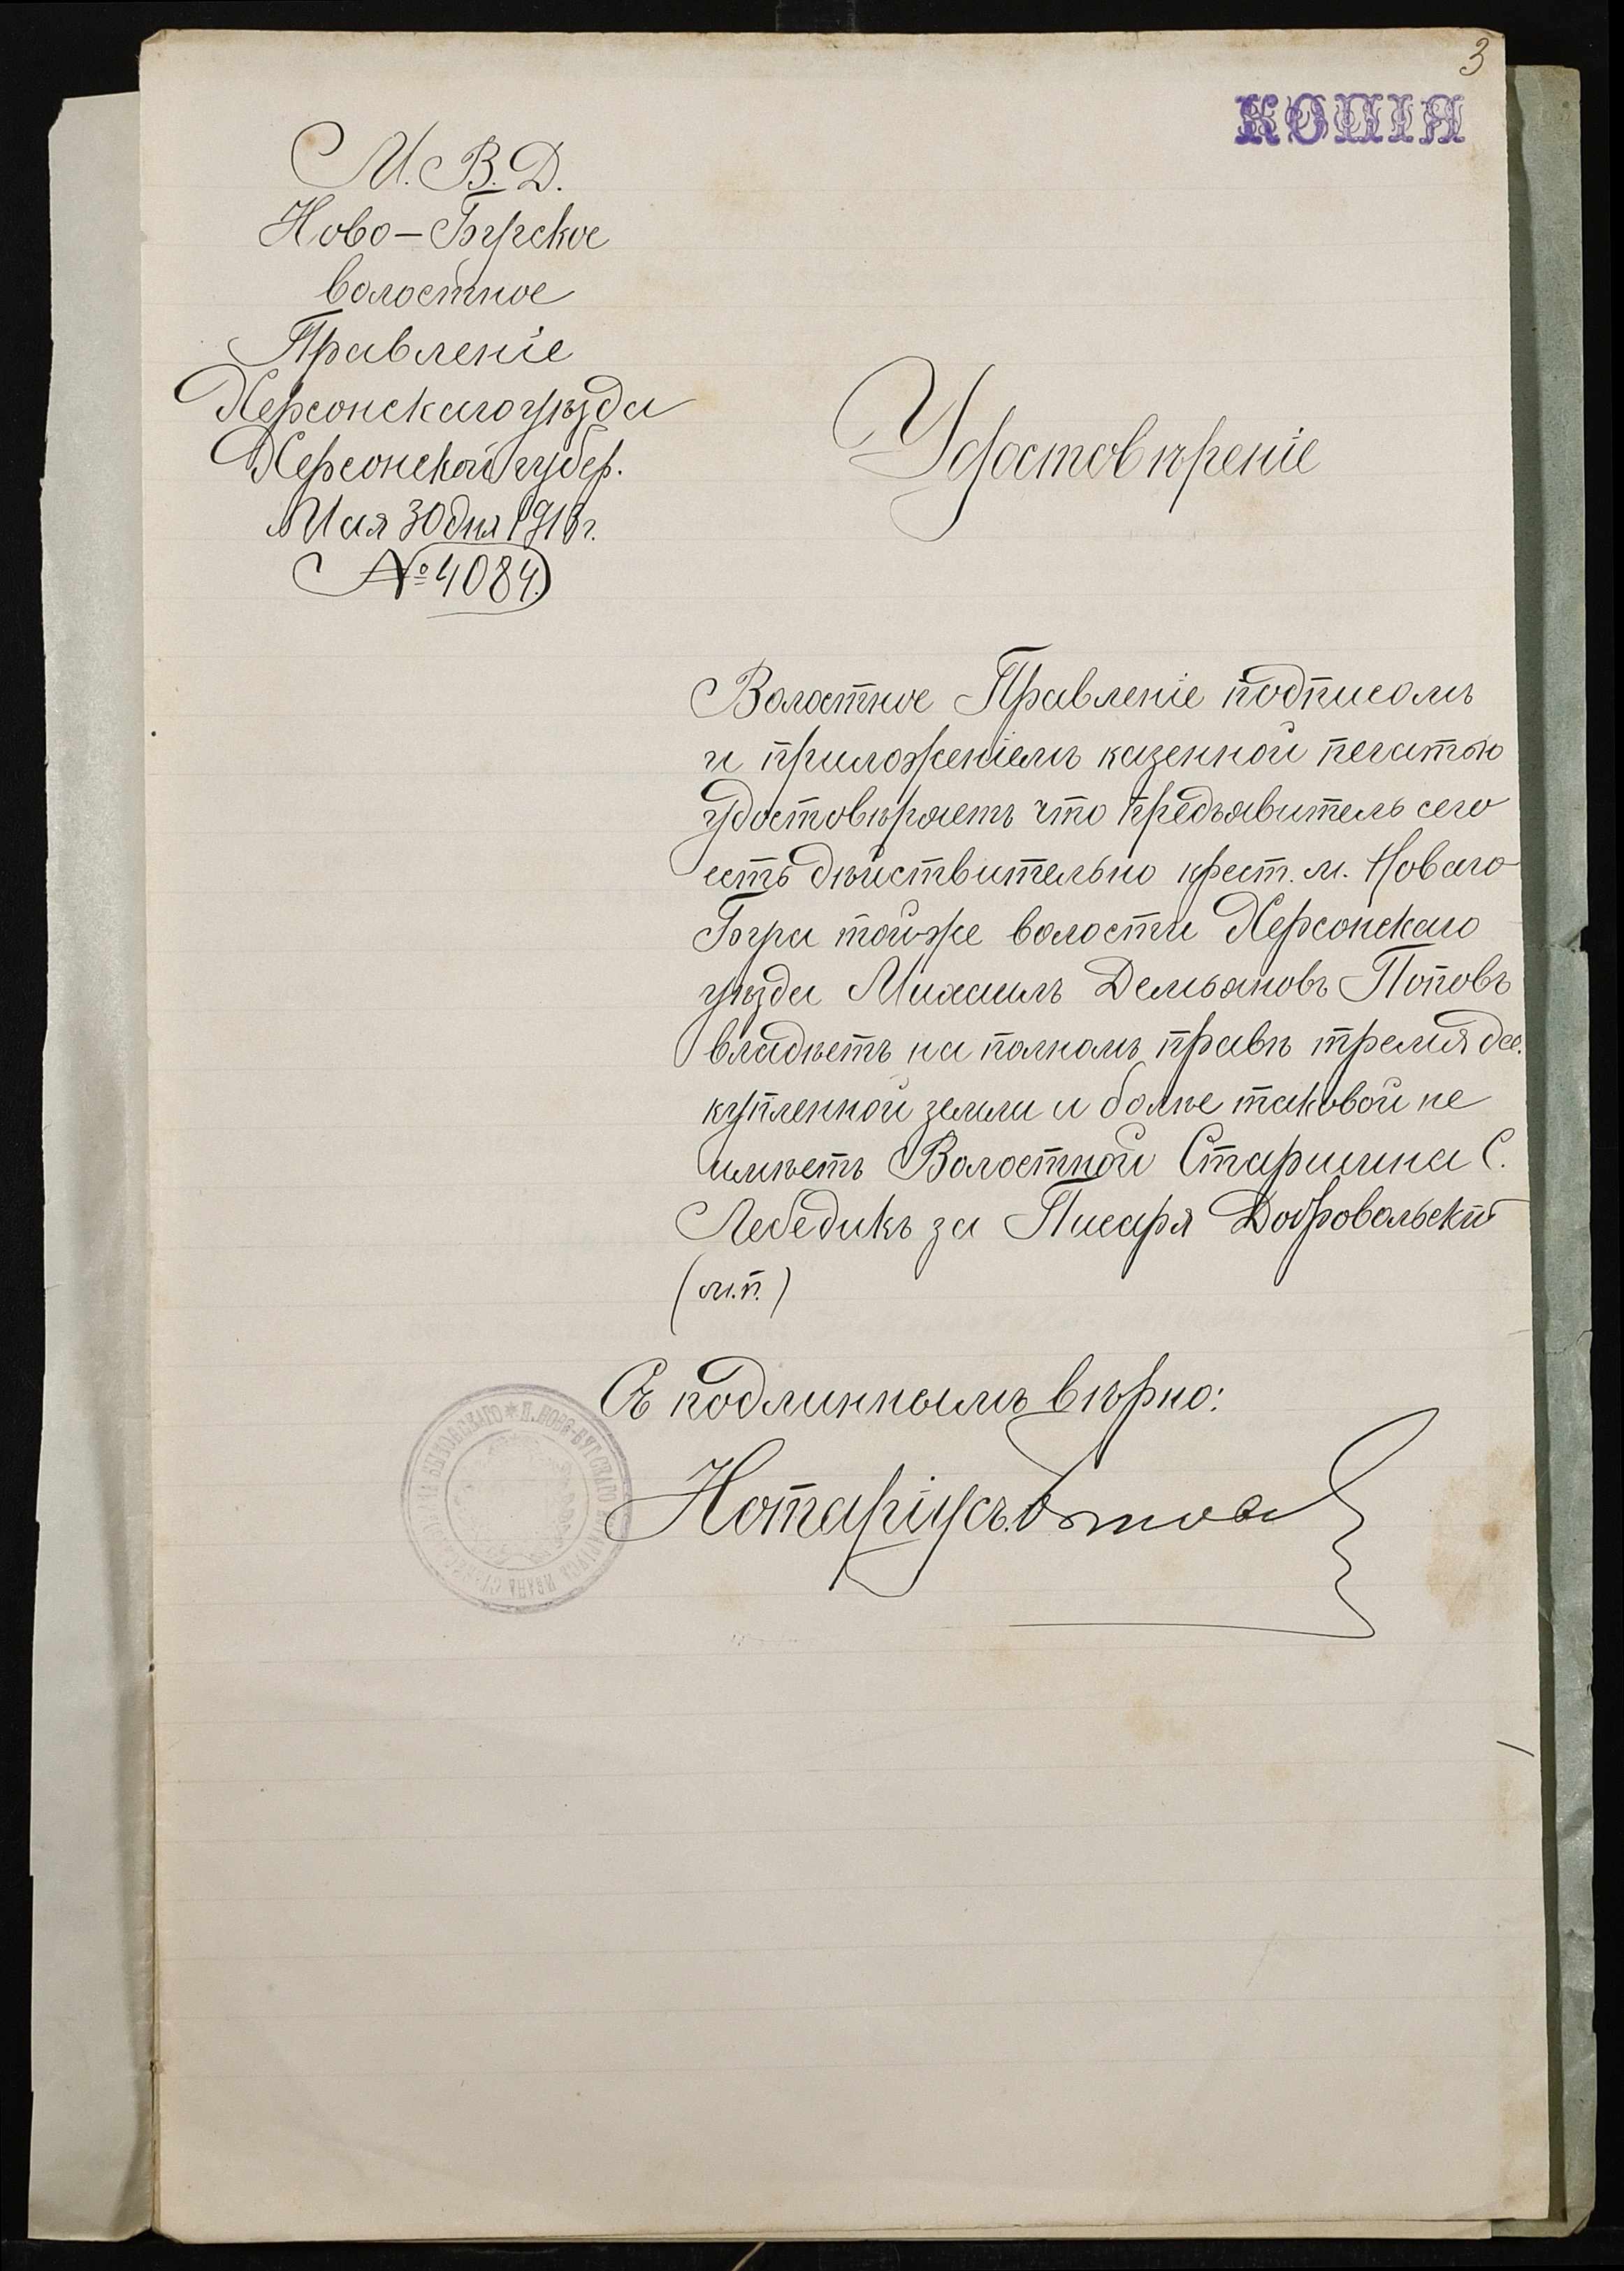 3
КОПІЯ
М. В. Д.
Ново-Бугское
волостное
Правленіе
Херсонскаго уѣзда
Херсонской губер.
Мая 30 дня 1913 г.
№ 4084.
Удостовѣреніе
Волостное Правленіе подписомъ
и приложеніемъ казенной печатью
удостовѣряетъ что предъявитель сего
есть дѣйствительно крест. м. Новаго
Буга той-же волости Херсонскаго
уѣзда Михаилъ Демьяновъ Поповъ
владѣетъ на полномъ правѣ тремя дес.
купленной земли и болѣе таковой не
имѣетъ Волостной Старшина С.
Лебедикъ за Писаря Добровольскій
(м.п.)
Съ подлиннымъ вѣрно:
Нотаріусъ
НОВО-БУГСКАГО НОТАРІУСА ИВАНА